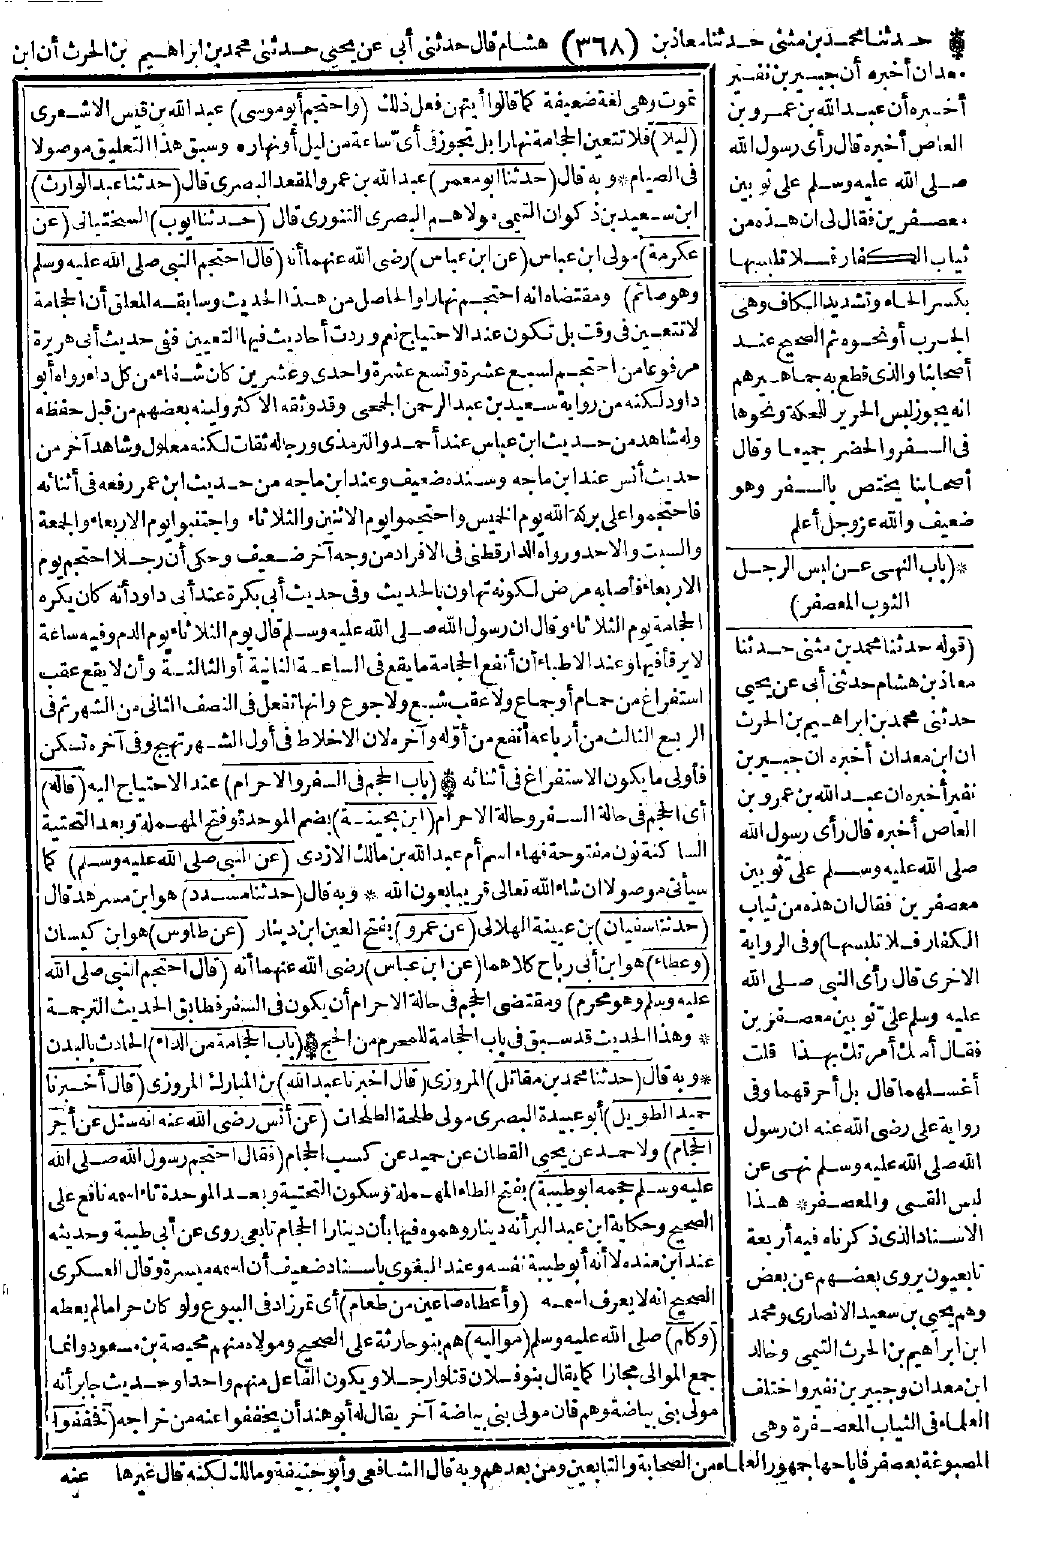 * حدثنا محمد بن مثنى حدثنا معاذ بن (٣٦٨) هشام قال حدثني أبي عن يحيى حدثني محمد بن ابراهيم بن الحرث أن ابن
معدان أخبره أن جبير بن نفير
أخبره أن عبد الله بن عمرو بن
العاص أخبره قال رأى رسول الله
صلى الله عليه وسلم علي ثوبين
معصفرين فقال لي ان هذه من
ثياب الكفار فلا تلبسها
بكسر الحاء وتشديد الكاف وهى
الجرب أو نحوه ثم الصحيح عند
أصحابنا والذى قطع به جماهيرهم
انه يجوز لبس الحرير للحكة ونحوها
فى السفر والحضر جميعا وقال
أصحابنا يختص بالسفر وهو
ضعيف والله عز وجل أعلم
*(باب النهى عن لبس الرجل
الثوب المعصفر)
(قوله حدثنا محمد بن مثنى حدثنا
معاذ بن هشام حدثنى أبى عن يحيى
حدثنى محمد بن ابراهيم بن الحرث
ان ابن معدان أخبره ان جبير بن
نفير أخبره ان عبد الله بن عمرو بن
العاص أخبره قال رأى رسول الله
صلى الله عليه وسلم على ثوبين
معصفرين فقال ان هذه من ثياب
الكفار فلا تلبسها) وفى الرواية
الاخرى قال رأى النبى صلى الله
عليه وسلم علىّ ثوبين معصفرين
فقال أمك أمرتك بهذا قلت
أغسلهما قال بل أحرقهما وفى
رواية على رضى الله عنه ان رسول
الله صلى الله عليه وسلم نهى عن
لبس القسى والمعصفر * هذا
الاسناد الذى ذكرناه فيه أربعة
تابعيون يروى بعضهم عن بعض
وهم يحيى بن سعيد الانصارى ومحمد
ابن ابراهيم بن الحرث التيمى وخالد
ابن معدان وجبير بن نفير واختلف
العلماء فى الثياب المعصفرة وهى
المصبوغة بعصفر فأباحها جمهور العلماء من الصحابة والتابعين ومن بعدهم وبه قال الشافعى وأبو حنيفة ومالك لكنه قال غيرها عنه
تموت وهى لغة ضعيفة كما قالوا أيتهن فعل ذلك (واحتجم أبو موسى) عبد الله بن قيس الاشعرى
(ليلا) فلا تتعين الحجامة نهارا بل تجوز فى أىّ ساعة من ليل أو نهار * وسبق هذا التعليق موصولا
فى الصيام * وبه قال (حدثنا ابو معمر) عبد الله بن عمرو المقعد البصرى قال (حدثنا عبد الوارث)
ابن سعيد بن ذكوان التيمى مولاهم البصرى التنورى قال (حدثنا ايوب) السختيانى (عن
عكرمة) مولى ابن عباس (عن ابن عباس) رضى الله عنهما أنه (قال احتجم النبى صلى الله عليه وسلم
وهو صائم) ومقتضاه انه احتجم نهارا والحاصل من هذا الحديث وسابقه المعلق أن الحجامة
لا تتعين فى وقت بل تكون عند الاحتياج نعم وردت أحاديث فيها التعيين ففى حديث أبى هريرة
مرفوعا من احتجم لسبع عشرة وتسع عشرة واحدى وعشرين كان شفاء من كل داء رواه أبو
داود لكنه من رواية سعيد بن عبد الرحمن الجمحى وقد وثقه الاكثر ولينه بعضهم من قبل حفظه
وله شاهد من حديث ابن عباس عند أحمد والترمذى ورجاله ثقات لكنه معلول وشاهد آخر من
حديث أنس عند ابن ماجه وسنده ضعيف وعند ابن ماجه من حديث ابن عمر رفعه فى أثنائه
فاحتجموا على بركة الله يوم الخميس واحتجموا يوم الاثنين والثلاثاء واجتنبوا يوم الاربعاء والجمعة
والسبت والاحد ورواه الدارقطنى فى الافراد من وجه آخر ضعيف وحكى أن رجلا احتجم يوم
الاربعاء فأصابه مرض لكونه تهاون بالحديث وفى حديث أبى بكرة عند أبى داود أنه كان يكره
الحجامة يوم الثلاثاء وقال ان رسول الله صلى الله عليه وسلم قال يوم الثلاثاء يوم الدم وفيه ساعة
لا يرقأ فيها وعند الاطباء أن أنفع الحجامة ما يقع فى الساعة الثانية أو الثالثة وأن لا يقع عقب
استفراغ من حمام أو جماع ولا عقب شبع ولا جوع وانها تفعل فى النصف الثانى من الشهر ثم فى
الربيع الثالث من أرباعه أنفع من أوله وآخره لان الاخلاط فى أول الشهر تهيج وفى آخره تسكن
فأولى ما يكون الاستفراغ فى أثنائه * (باب الحجم فى السفر والاحرام) عند الاحتياج اليه (قاله)
أى الحجم فى حالة السفر وحالة الاحرام (ابن بحينة) بضم الموحدة وفتح المهملة وبعد التحتية
الساكنة نون مفتوحة فهاء اسم أم عبد الله بن مالك الازدى (عن النبى صلى الله عليه وسلم) كما
سيأتى موصولا ان شاء الله تعالى قريبا بعون الله * وبه قال (حدثنا مسدد) هو ابن مسرهد قال
(حدثنا سفيان) بن عيينة الهلالى (عن عمرو) بفتح العين ابن دينار (عن طاوس) هو ابن كيسان
(وعطاء) هو ابن أبى رباح كلاهما (عن ابن عباس) رضى الله عنهما أنه (قال احتجم النبى صلى الله
عليه وسلم وهو محرم) ومقتضى الحجم فى حالة الاحرام أن يكون فى السفر فطابق الحديث الترجمة
* وهذا الحديث قد سبق فى باب الحجامة للمحرم من الحج * (باب الحجامة من الداء) الحادث بالبدن
* وبه قال (حدثنا محمد بن مقاتل) المروزى (قال اخبرنا عبد الله) بن المبارك المروزى (قال أخبرنا
حميد الطويل) أبو عبيدة البصرى مولى طلحة الطلحات (عن أنس رضى الله عنه انه سئل عن أجر
الحجام) ولاحمد عن يحيى القطان عن حميد عن كسب الحجام (فقال احتجم رسول الله صلى الله
عليه وسلم حجمه ابو طيبة) بفتح الطاء المهملة وسكون التحتية وبعد الموحدة تاء اسمه نافع على
الصحيح وحكاية ابن عبد البر أنه دينار وهموه فيها بأن دينارا الحجام تابعى روى عن أبى طيبة وحديثه
عند ابن منده لا أنه أبو طيبة نفسه وعند البغوى باسناد ضعيف أن اسمه ميسرة وقال العسكرى
الصحيح انه لا يعرف اسمه (وأعطاه صاعين من طعام) أى تمر زاد فى البيوع ولو كان حراما لم يعطه
(وكلم) صلى الله عليه وسلم (مواليه) هم بنو حارثة على الصحيح ومولاه منهم محيصة بن مسعود وانما
جمع الموالى مجازا كما يقال بنو فلان قتلوا رجلا ويكون القاتل منهم واحدا وحديث جابر أنه
مولى بنى بياضة وهم فان مولى بنى بياضة آخر يقال له أبو هند أن يخففوا عنه من خراجه (فخففوا